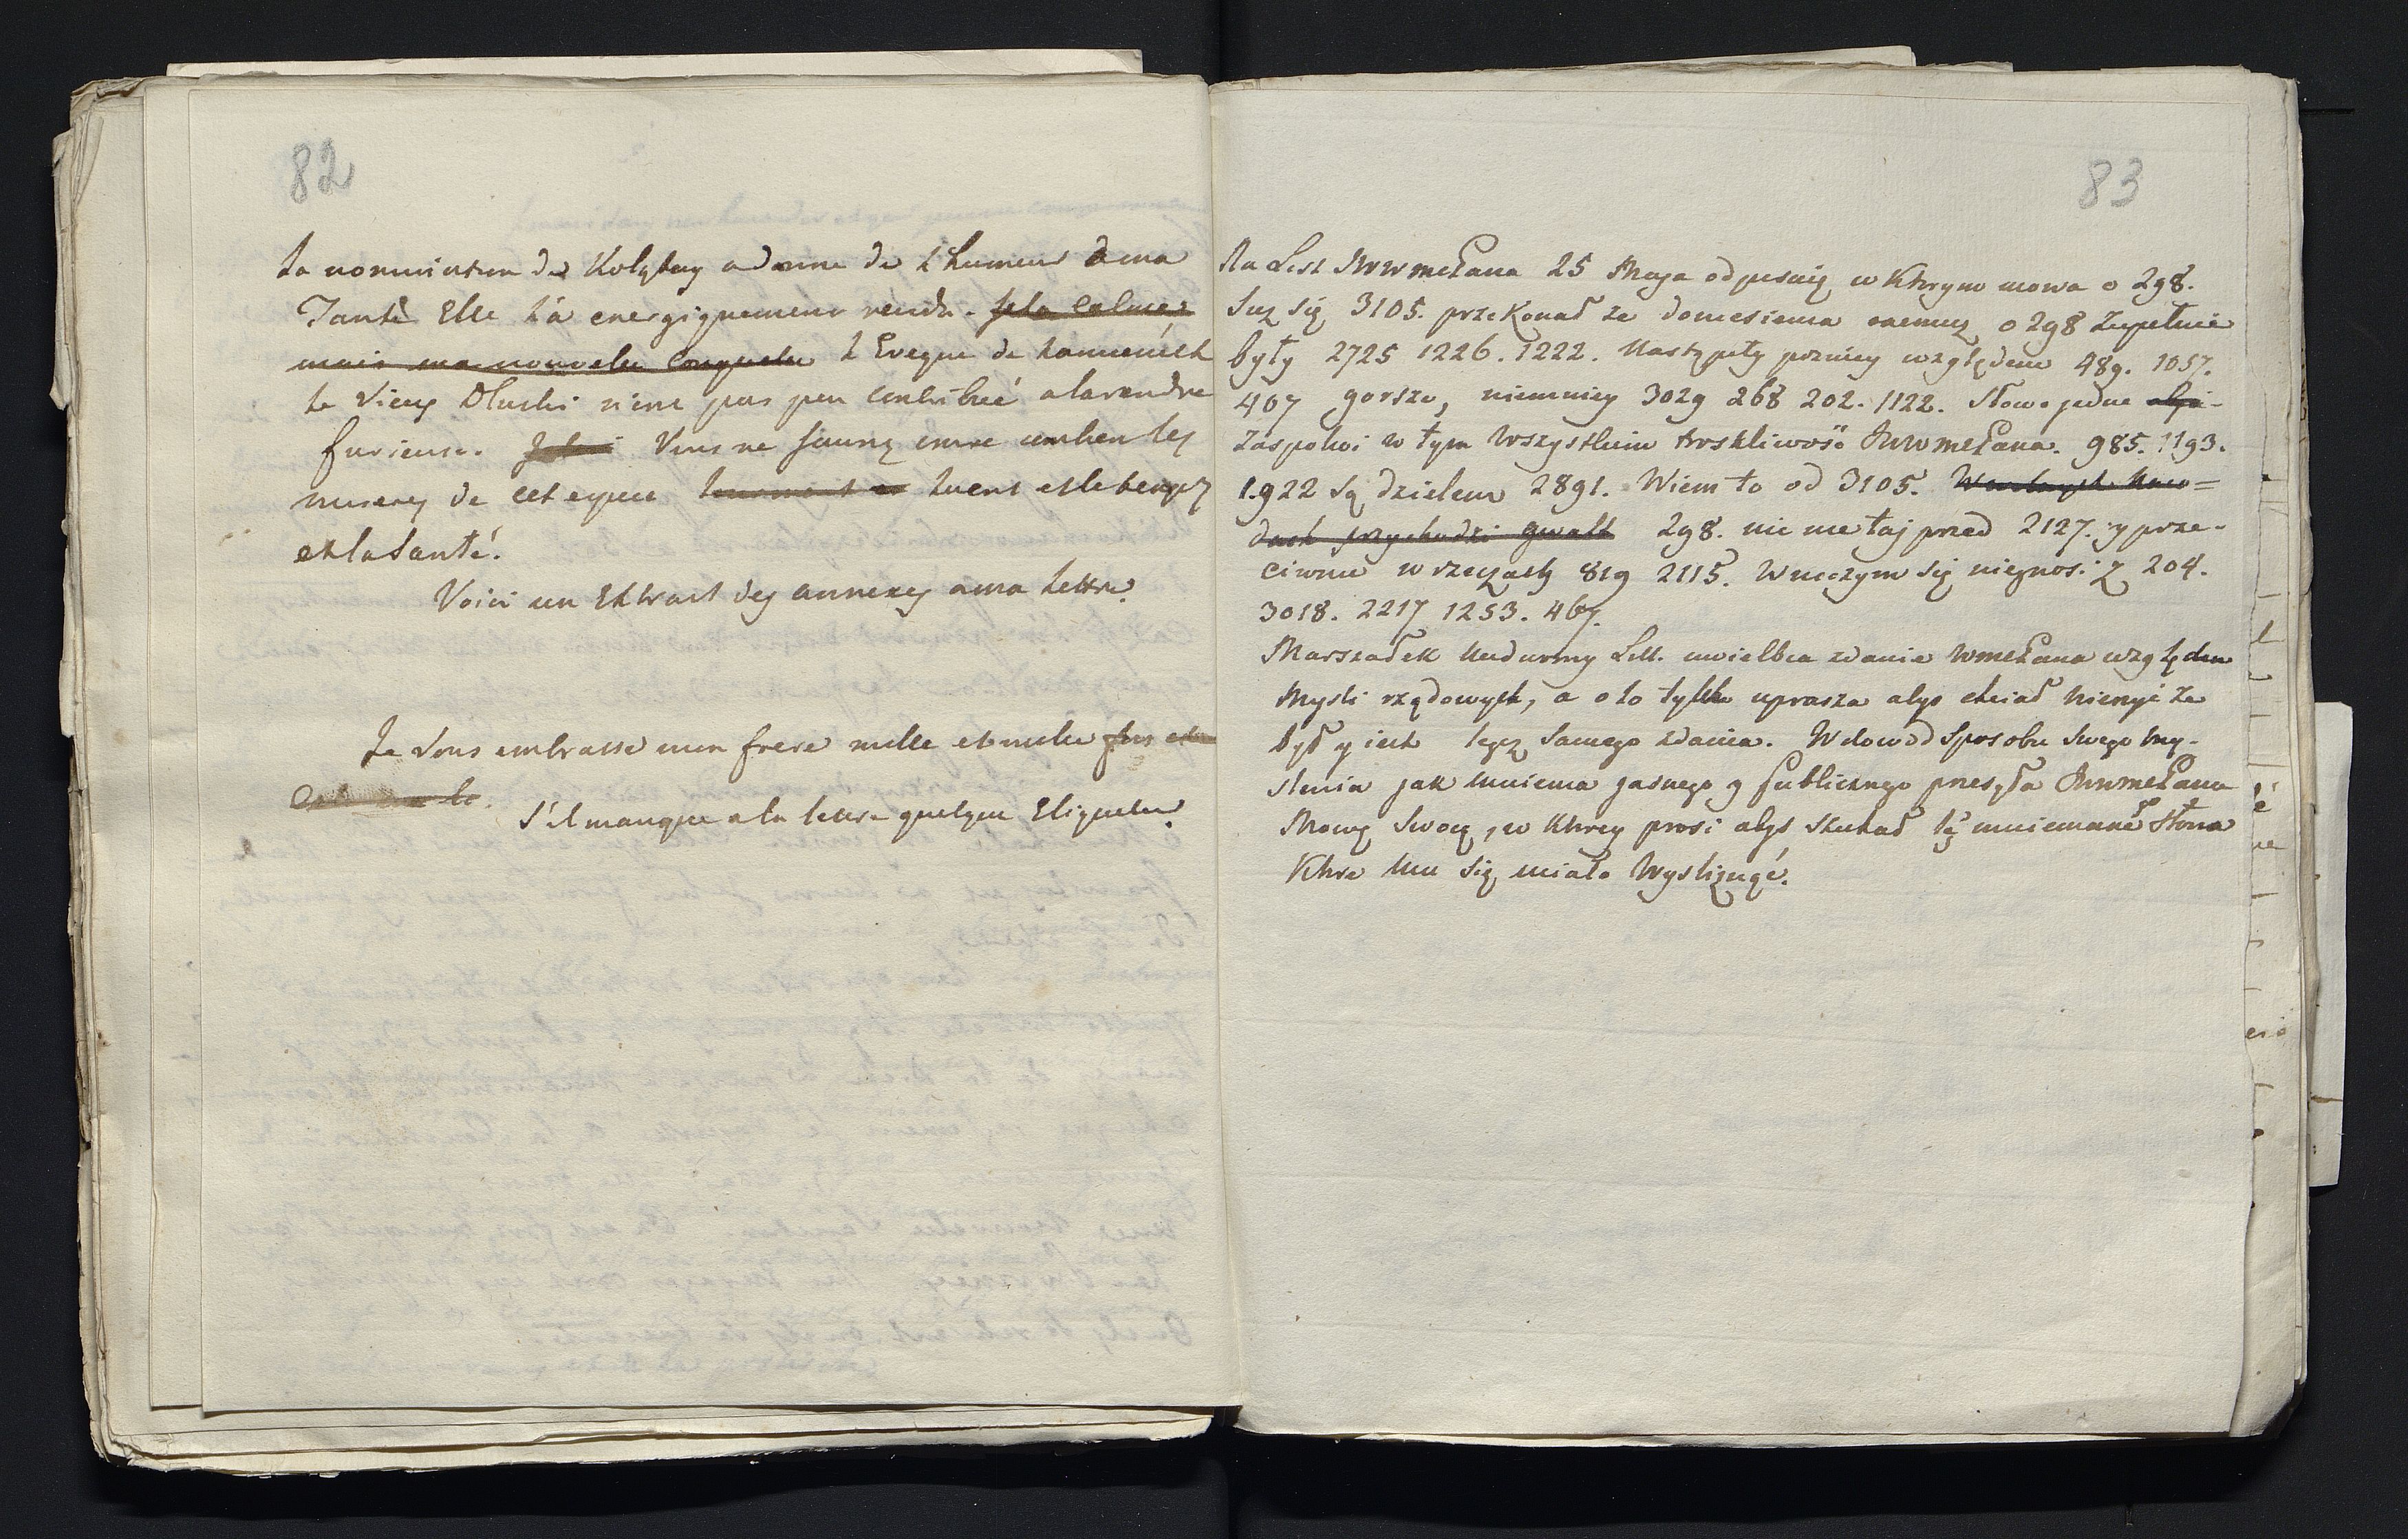 82
La nomination de Kolątay a donné de l'humeur a ma
Tante Elle l'a energiquement rendu. je la calmez
mais ma nouvelle conquete L'Eveque de Kamienieck
le vieux Dluski n'ont pas peu contribué a la rendre
furieuse. Vous ne saurez croire combien les
miseres de cet espece tuent et le temps
et la santé.
Voici un Extrait des annexes a ma lettre.
Je vous embrasse mon frere mille et mille
S'il manque a la lettre quelque Etiquette.
83
Na List JWWmcPana 25 Maja odpisuię w Ktorym mowa o 298.
Juz się 3105. przekonał ze doniesienia o 298 zupełnie
były 2725 1226. 1222. Nastąpiły pozniey względem 489. 1057.
407 gorsze, niemniey 3029 268 202. 1122. Słowo jedne
zaspokoi w tym wszystkim troskliwość JWWmcPana. 985. 1193.
1.922 są dziełem 2891. Wiem to od 3105.
dach przychodzi gwałt 298. nic nie taj przed 2127. y prze-
ciwnie w rzeczach 819 2115. W niczym się nieznosi z 204.
3018. 2217 1253. 467.
Marszałek Nadworny Litt. uwielbia zdanie WmcPana względem
Mysli rządowych, a o to tylko uprasza abys chciał wierzyć ze
był y iest tegoz samego zdania. W dowod sposobu swego my-
slenia jak mniema jasnego y publicznego przesyła JWWmcPanu
Mowę Swoię, w Ktorey prosi abys szukał te mniemane słowa
Ktore mu się miało wyslizgnąć.